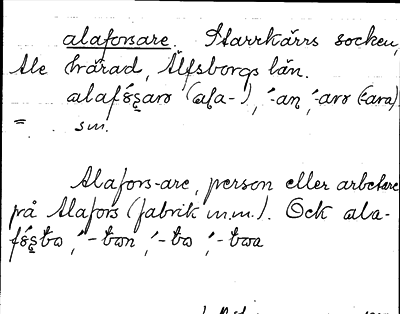 alaforsare. Starrkärrs socken,
Ale härad, Älfsborgs län.
alafó̤sarə (ala-), ´-an, ´-arə (-ara)
= sm.
Alafors-are, person eller arbetare
på Alafors (fabrik m.m.). Ock ala-